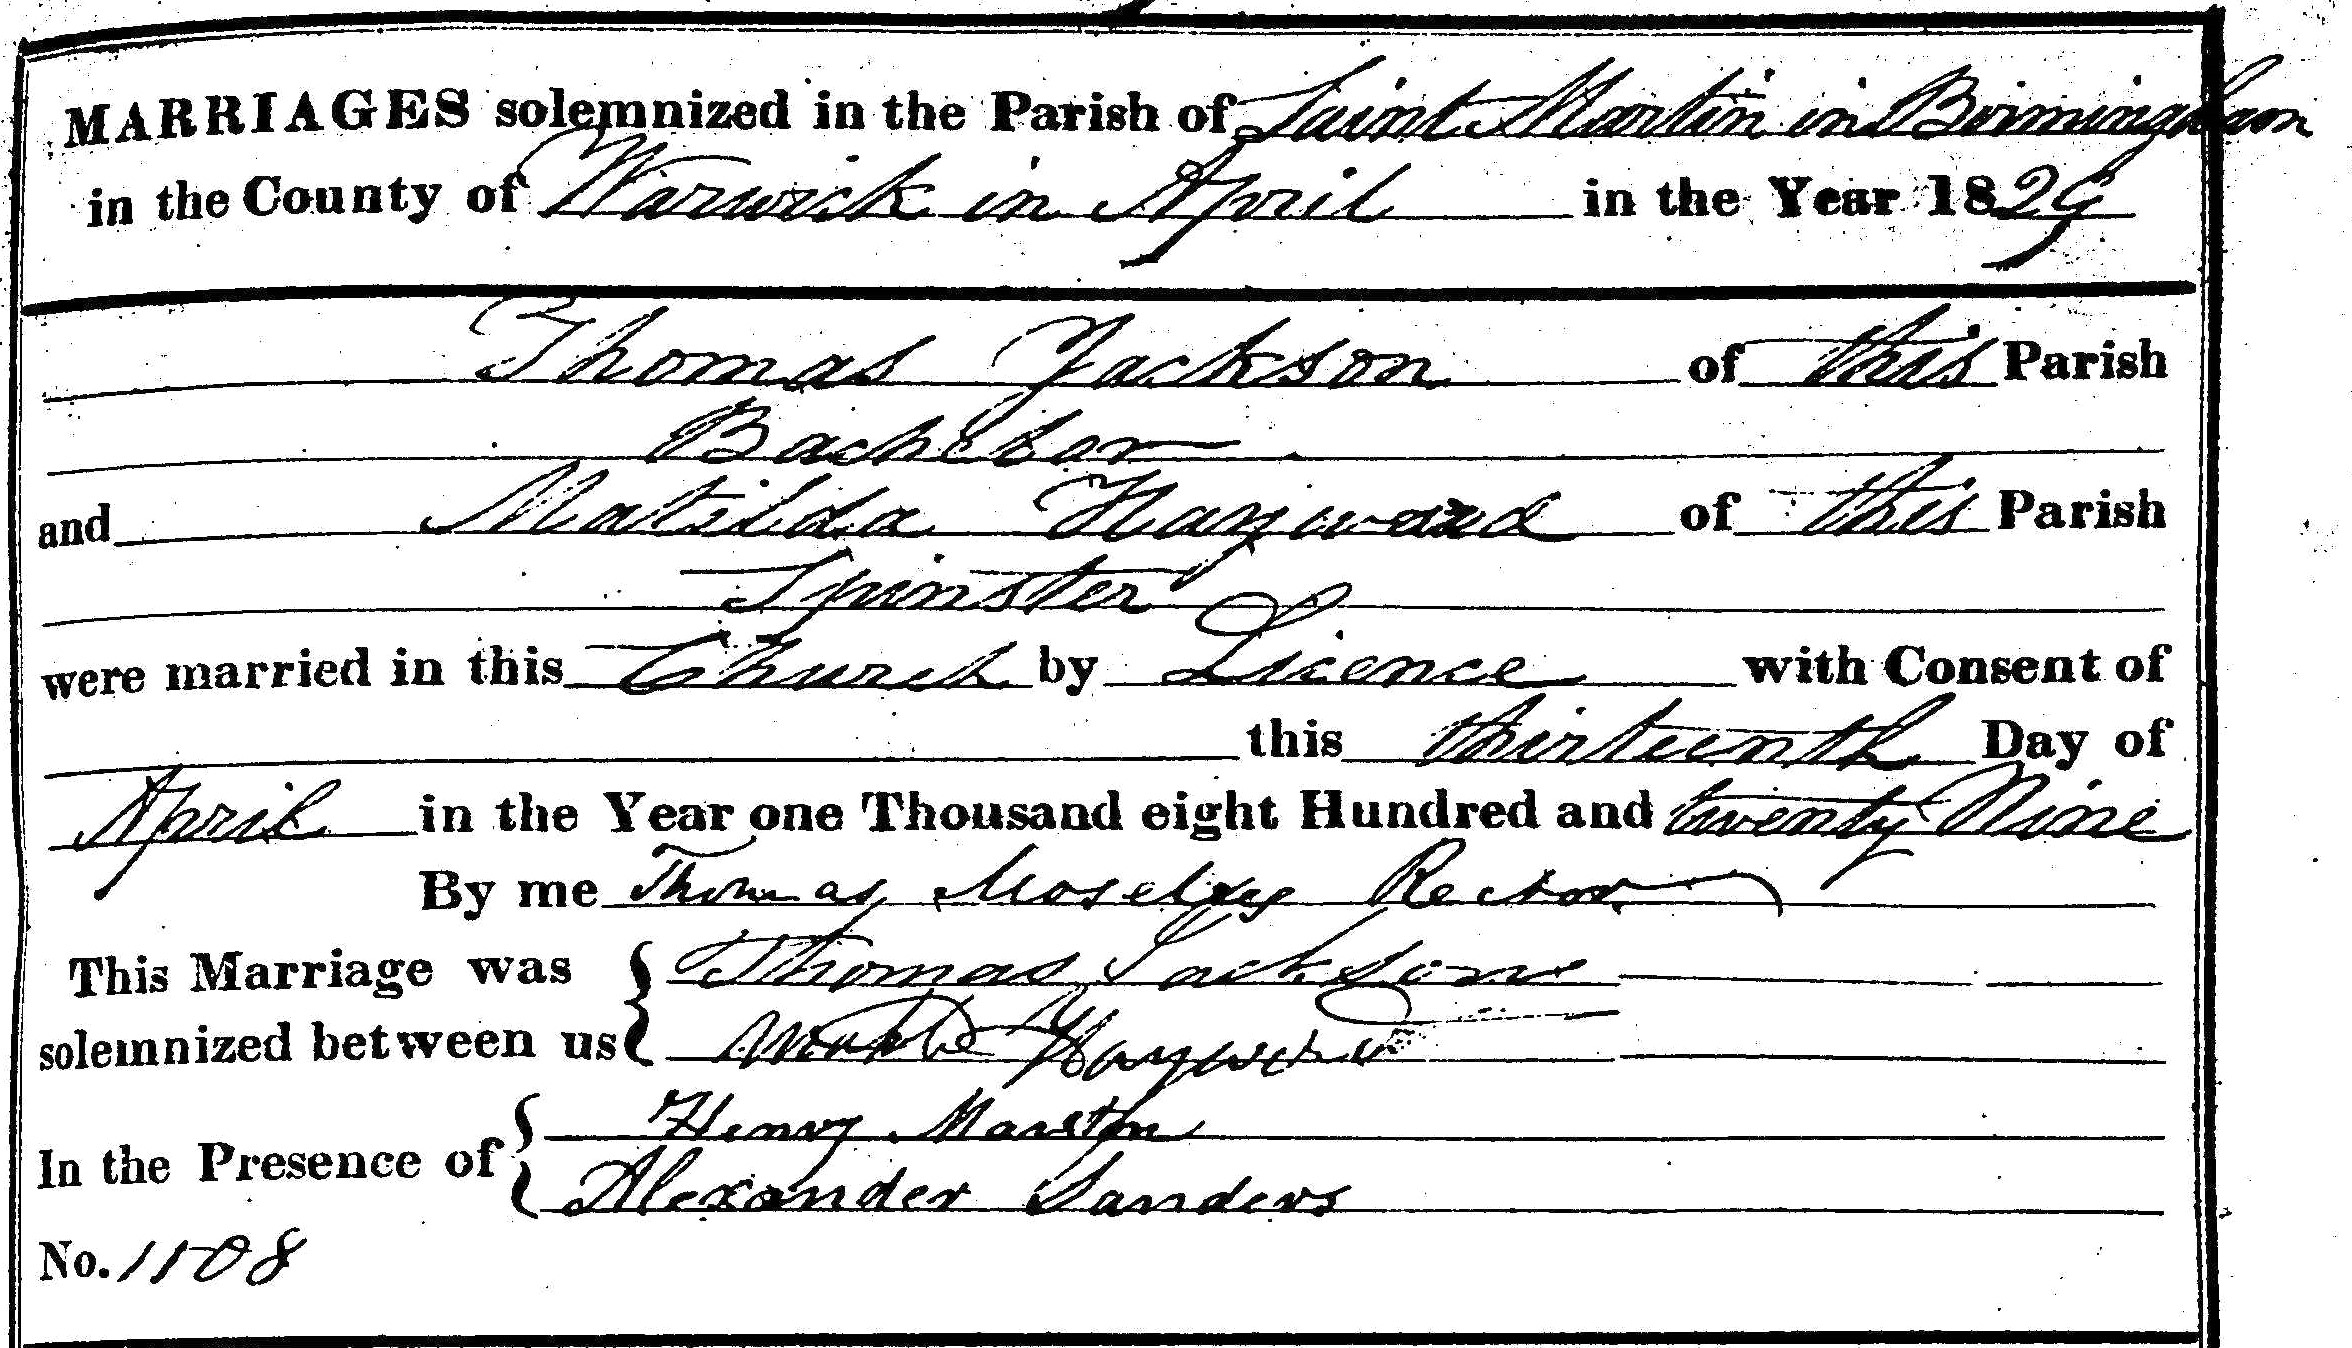 MARRIAGES solemnized in the Parish of Saint Martin in Birmingham
in the County of Warwick in April in the Year 1829
Thomas Jackson of this Parish
Bachelor
and Matilda Hayward of this Parish
Spinster
were married in this Church by Licence with Consent of
this thirteenth Day of
April in the Year one Thousand eight Hundred and twenty Nine
By me Thomas Moseley Rector
This Marriage was { Thomas Jackson
solemnized between us { Hayward
In the Presence of { Henry Marston
Alexander Sanders
No. 1108